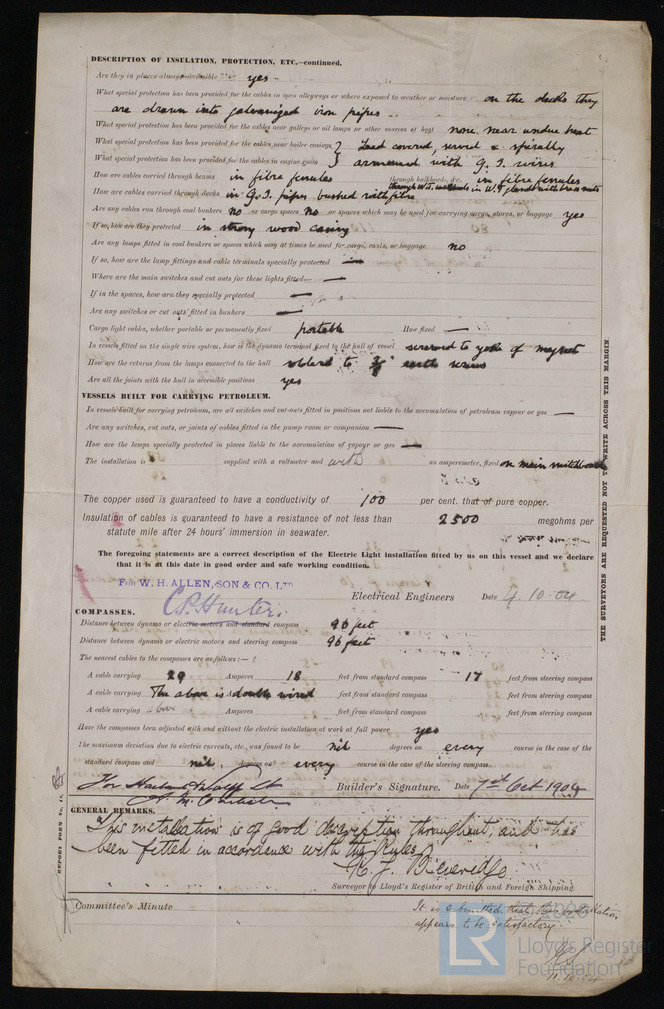 DESCRIPTION OF INSULATION, PROTECTION, ETC.—continued.
Are they in places always accessible yes
What special protection has been provided for the cables in open alleyways or where exposed to weather or moisture on the decks they
are drawn into galvanized iron pipes
What special protection has been provided for the cables near galleys or oil lamps or other sources of heat none near undue heat
What special protection has been provided for the cables near boiler casings } Lead covered served & spirally
What special protection has been provided for the cables in engine room } armoured with G. I. wires
How are cables carried through beams in fibre ferrules through bulkheads, &c. in fibre ferrules
through W.T. bulkheads in W.T. glands with brass nuts
How are cables carried through decks in G.I. pipes bushed with fibre
Are any cables run through coal bunkers no or cargo spaces no or spaces which may be used for carrying cargo, stores, or baggage yes
If so, how are they protected in strong wood casing
Are any lamps fitted in coal bunkers or spaces which may at times be used for cargo, coals, or baggage no
If so, how are the lamp fittings and cable terminals specially protected —
Where are the main switches and cut outs for these lights fitted —
If in the spaces, how are they specially protected —
Are any switches or cut outs fitted in bunkers —
Cargo light cables, whether portable or permanently fixed portable How fixed —
In vessels fitted on the single wire system, how is the dynamo terminal fixed to the hull of vessel screwed to yoke of magnet
How are the returns from the lamps connected to the hull soldered to 3/8" earth screws
Are all the joints with the hull in accessible positions yes
VESSELS BUILT FOR CARRYING PETROLEUM.
In vessels built for carrying petroleum, are all switches and cut-outs fitted in positions not liable to the accumulation of petroleum vapour or gas —
Are any switches, cut outs, or joints of cables fitted in the pump room or companion —
How are the lamps specially protected in places liable to the accumulation of vapour or gas —
The installation is supplied with a voltmeter and with an amperemeter, fixed on main switchboard
The copper used is guaranteed to have a conductivity of 100 per cent. that of pure copper.
Insulation of cables is guaranteed to have a resistance of not less than 2500 megohms per
statute mile after 24 hours' immersion in seawater.
The foregoing statements are a correct description of the Electric Light installation fitted by us on this vessel and we declare
that it is at this date in good order and safe working condition.
FOR W. H. ALLEN, SON & CO. LTD
C.P. Hunter. Electrical Engineers Date 4.10.04.
COMPASSES.
Distance between dynamo or electric motors and standard compass 96 feet
Distance between dynamo or electric motors and steering compass 96 feet
The nearest cables to the compasses are as follows:—
A cable carrying 29 Amperes 18 feet from standard compass 17 feet from steering compass
A cable carrying The above is double wired feet from standard compass feet from steering compass
A cable carrying Amperes feet from standard compass feet from steering compass
Have the compasses been adjusted with and without the electric installation at work at full power yes
The maximum deviation due to electric currents, etc., was found to be nil degrees on every course in the case of the
standard compass and nil degrees on every course in the case of the steering compass.
For Harland & Wolff Ld
Builder's Signature. Date 7th Oct 1904
GENERAL REMARKS.
This installation is of good description throughout, and has
been fitted in accordance with the Rules
R. J. Beveridge
Surveyor to Lloyd's Register of British and Foreign Shipping.
Committee's Minute
It is submitted that this installation
appears to be satisfactory.
11.10.04
THE SURVEYORS ARE REQUESTED NOT TO WRITE ACROSS THIS MARGIN.
REPORT FORM No. 11.
LR
Lloyd's Register
Foundation